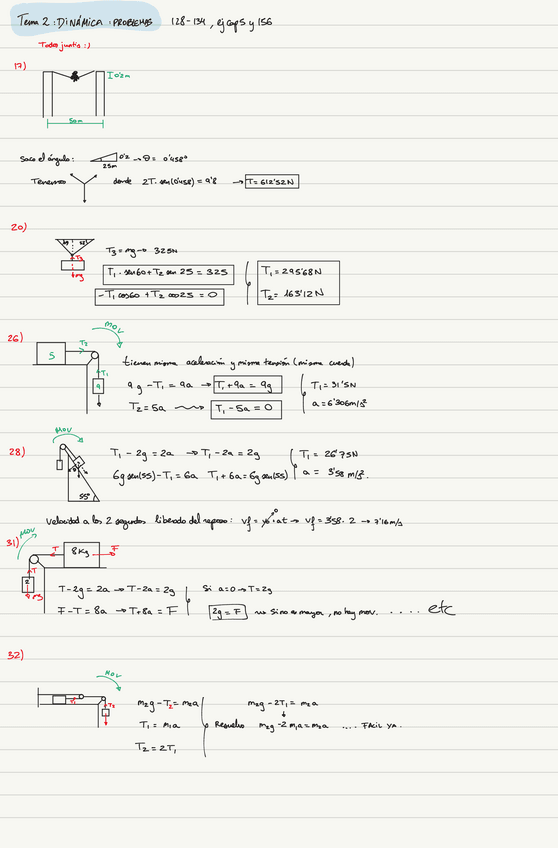 Tema 2: DINÁMICA: PROBLEMAS 128-134, ej cap 5 y 156
Todos juntis :)
17)
0'2m
50m
Saco el ángulo: 0'2 25m → θ = 0'458°
Tenemos donde 2T · sen(0'458) = 9'8 → T = 612'52N
20)
T3 = mg → 325N
T1 · sen60 + T2 sen 25 = 325
-T1 cos60 + T2 cos25 = 0
T1 = 295'68N
T2 = 163'12N
T3
mg
26)
MOV
5
T2
T1
9
tienen misma aceleración y misma tensión (misma cuerda)
9g - T1 = 9a → T1 + 9a = 9g
T2 = 5a T1 - 5a = 0
T1 = 31'5N
a = 6'306m/s²
28)
MOV
55°
T1 - 2g = 2a → T1 - 2a = 2g
6g sen(55) - T1 = 6a T1 + 6a = 6g sen(55)
T1 = 26'75N
a = 3'58 m/s².
Velocidad a los 2 segundos liberado del reposo: Vf = V0 + at → Vf = 3'58 · 2 → 7'16m/s
31)
MOV
T
8Kg
F
T
2
T - 2g = 2a → T - 2a = 2g
F - T = 8a → T + 8a = F
Si a=0 → T = 2g
2g = F → Si no es mayor, no hay mov. .... etc
32)
MOV
T1
T2
m2g - T2 = m2a
T1 = m1a
T2 = 2T1
m2g - 2T1 = m2a
Resuelvo m2g - 2m1a = m2a .... FÁCIL YA.